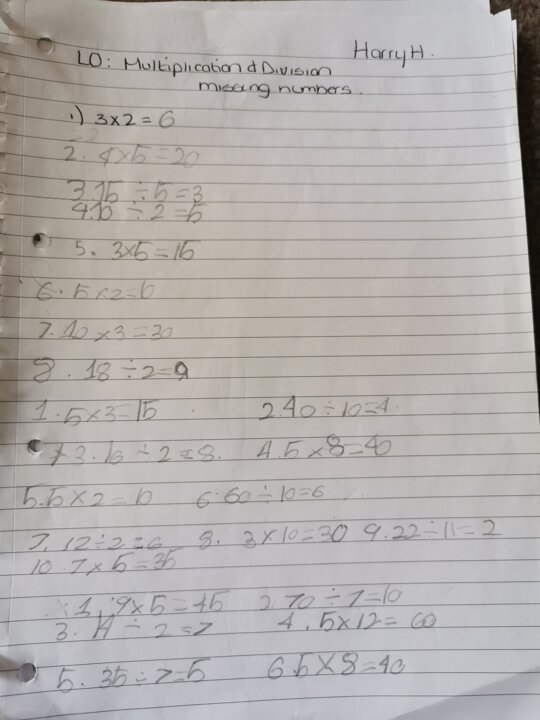 Harry H.
LO: Multiplication & Division
missing numbers.
1) 3x2=6
2. 4x5=20
3. 15 ÷ 5 = 3
4. 10 ÷ 2 = 5
5. 3x5=15
6. 5x2=10
7. 10 x 3 = 30
8. 18 ÷ 2 = 9
1. 5x3=15 2. 40÷10=4.
3. 16 ÷ 2 = 8. 4. 5x8=40
5. 5x2=10 6. 60÷10=6
7. 12÷2=6 8. 3x10=30 9. 22÷11=2
10. 7x5=35
1. 9x5=45 2. 70÷7=10
3. 14 ÷ 2 = 7 4. 5x12= 60
5. 35÷7=5 6. 5x8=40